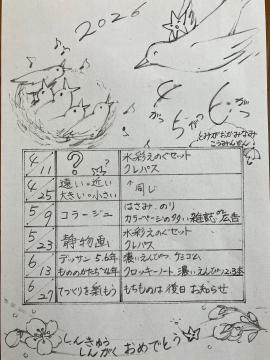 2026
4がつ
5がつ
6がつ
とみがおかみなみ
こうみんかん
4/11 ? 水彩えのぐセット
クレパス
4/25 遠い。近い 大きい。小さい ↑同じ
5/9 コラージュ はさみ、のり
カラーページの多い雑誌や広告
5/23 静物画 水彩えのぐセット
クレパス
6/13 デッサン 5.6年 濃いえんぴつ、ケシゴム
もののかたち 4年 クロッキーノート 濃いえんぴつ2.3本
6/27 てづくりを楽もう もちものは後日お知らせ
しんきゅう
しんがく おめでとう